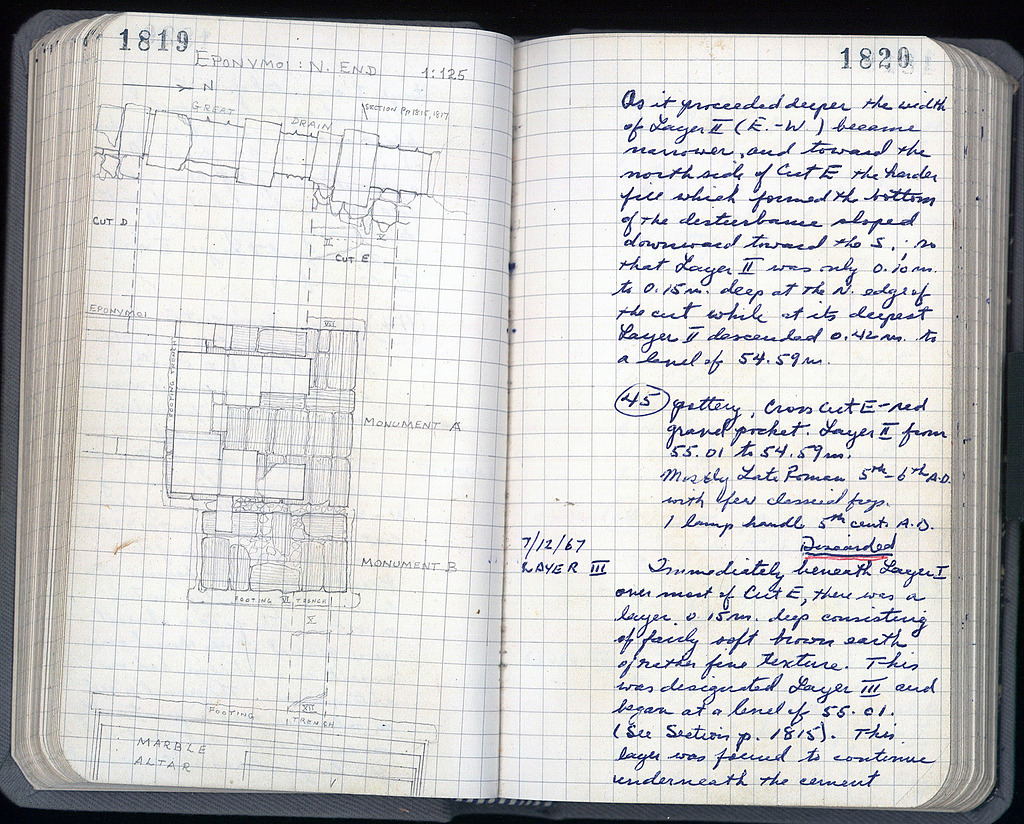 1819
EPONYMOI : N. END 1:125
N
GREAT
SECTION PP 1815, 1817
DRAIN
CUT D
II
V
CUT E
EPONYMOI
VII
FOOTING TRENCH
MONUMENT A
MONUMENT B
FOOTING VI TRENCH
X
XII
FOOTING TRENCH
MARBLE
ALTAR
1820
As it proceeded deeper the width
of Layer II (E.-W.) became
narrower, and toward the
north side of Cut E the harder
fill which formed the bottom
of the disturbance sloped
downward toward the S.; so
that Layer II was only 0.10 m.
to 0.15 m. deep at the N. edge of
the cut while at its deepest
Layer II descended 0.42 m. to
a level of 54.59 m.
45 pottery, Cross Cut E - red
gravel pocket. Layer II from
55.01 to 54.59 m.
Mostly Late Roman 5th - 6th A.D.
with few classical frags.
1 lamp handle 5th cent. A.D.
Discarded
7/12/67
LAYER III
Immediately beneath Layer I
over most of Cut E, there was a
layer 0.15 m. deep consisting
of fairly soft brown earth
of rather fine texture. This
was designated Layer III and
began at a level of 55.01.
(See Section p. 1815). This
layer was found to continue
underneath the cement